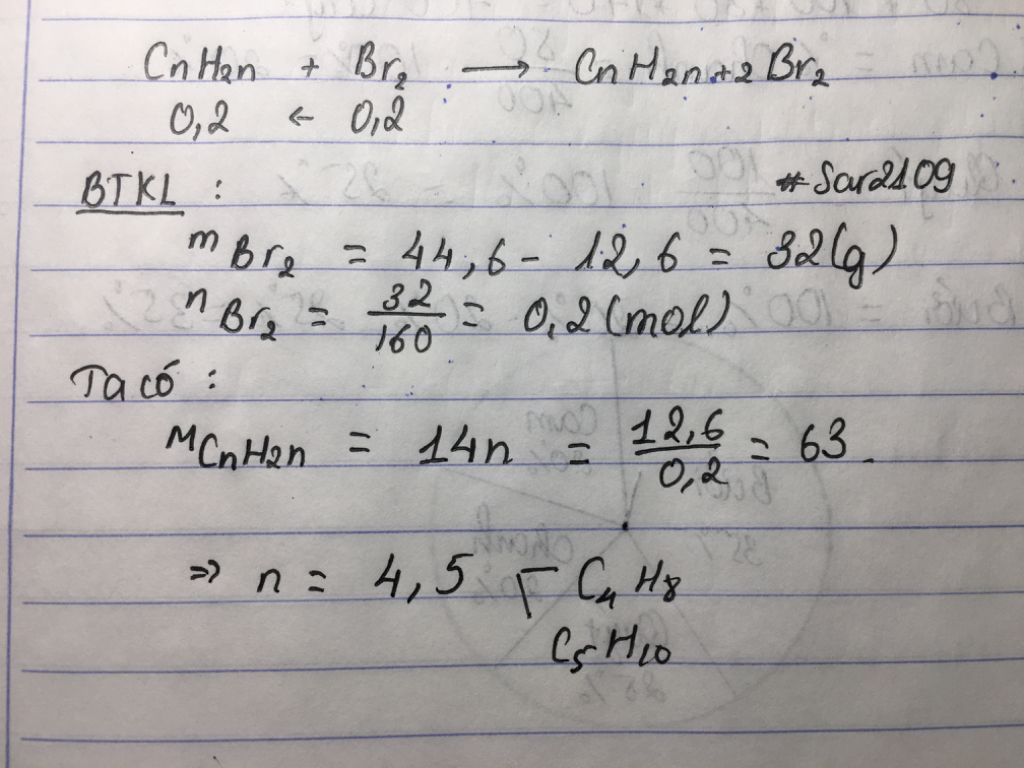 CnH2n + Br2 → CnH2n+2Br2
0,2 ← 0,2
BTKL :
#Sar2109
mBr2 = 44,6 - 12,6 = 32(g)
nBr2 = 32/160 = 0,2(mol)
Ta có :
MCnH2n = 14n = 12,6/0,2 = 63
⇒ n = 4,5 C4H8
C5H10